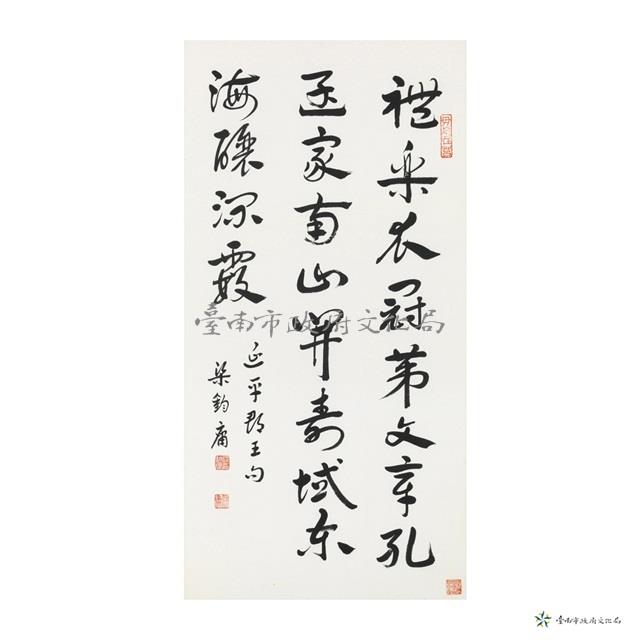 禮樂衣冠第文章孔
孟家南山開壽域东
海釀流霞
延平郡王句
梁鈞庸
臺南市政府文化局
臺南市政府文化局